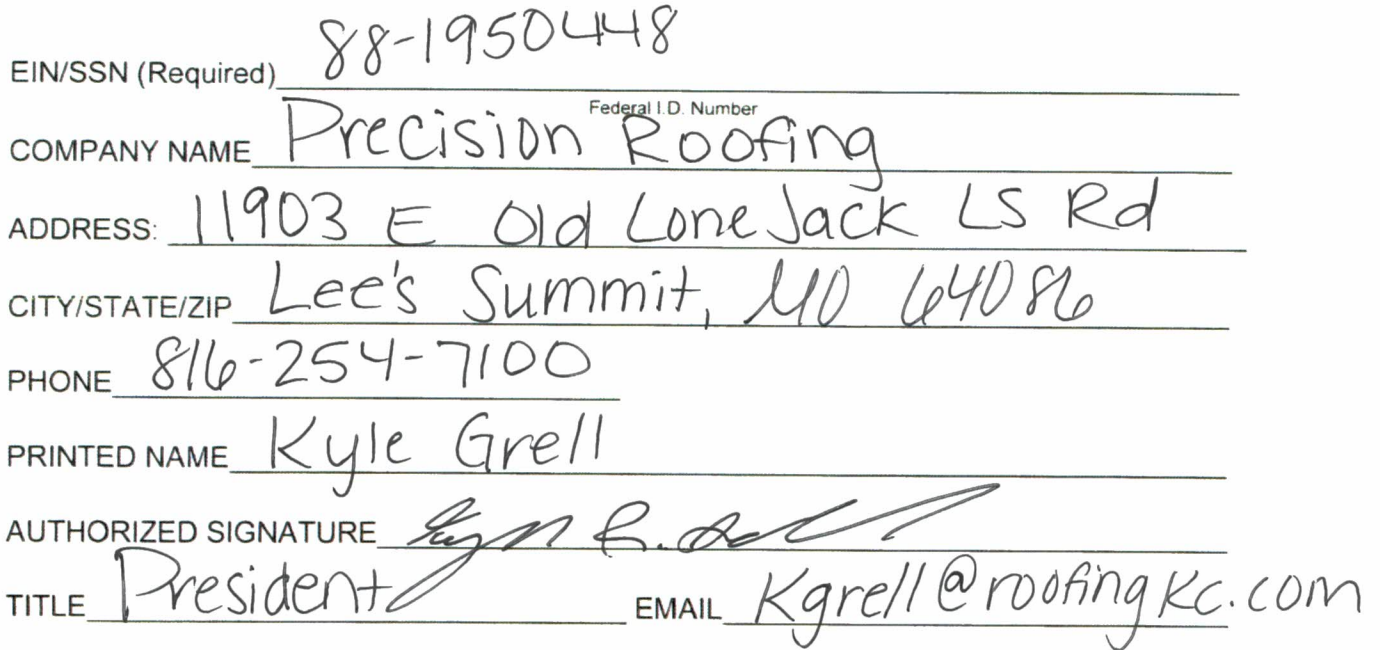 EIN/SSN (Required) 88-1950448
Federal I.D. Number
COMPANY NAME Precision Roofing
ADDRESS: 11903 E Old Lone Jack LS Rd
CITY/STATE/ZIP Lee's Summit, MO 64086
PHONE 816-254-7100
PRINTED NAME Kyle Grell
AUTHORIZED SIGNATURE
TITLE President EMAIL Kgrell@roofingkc.com